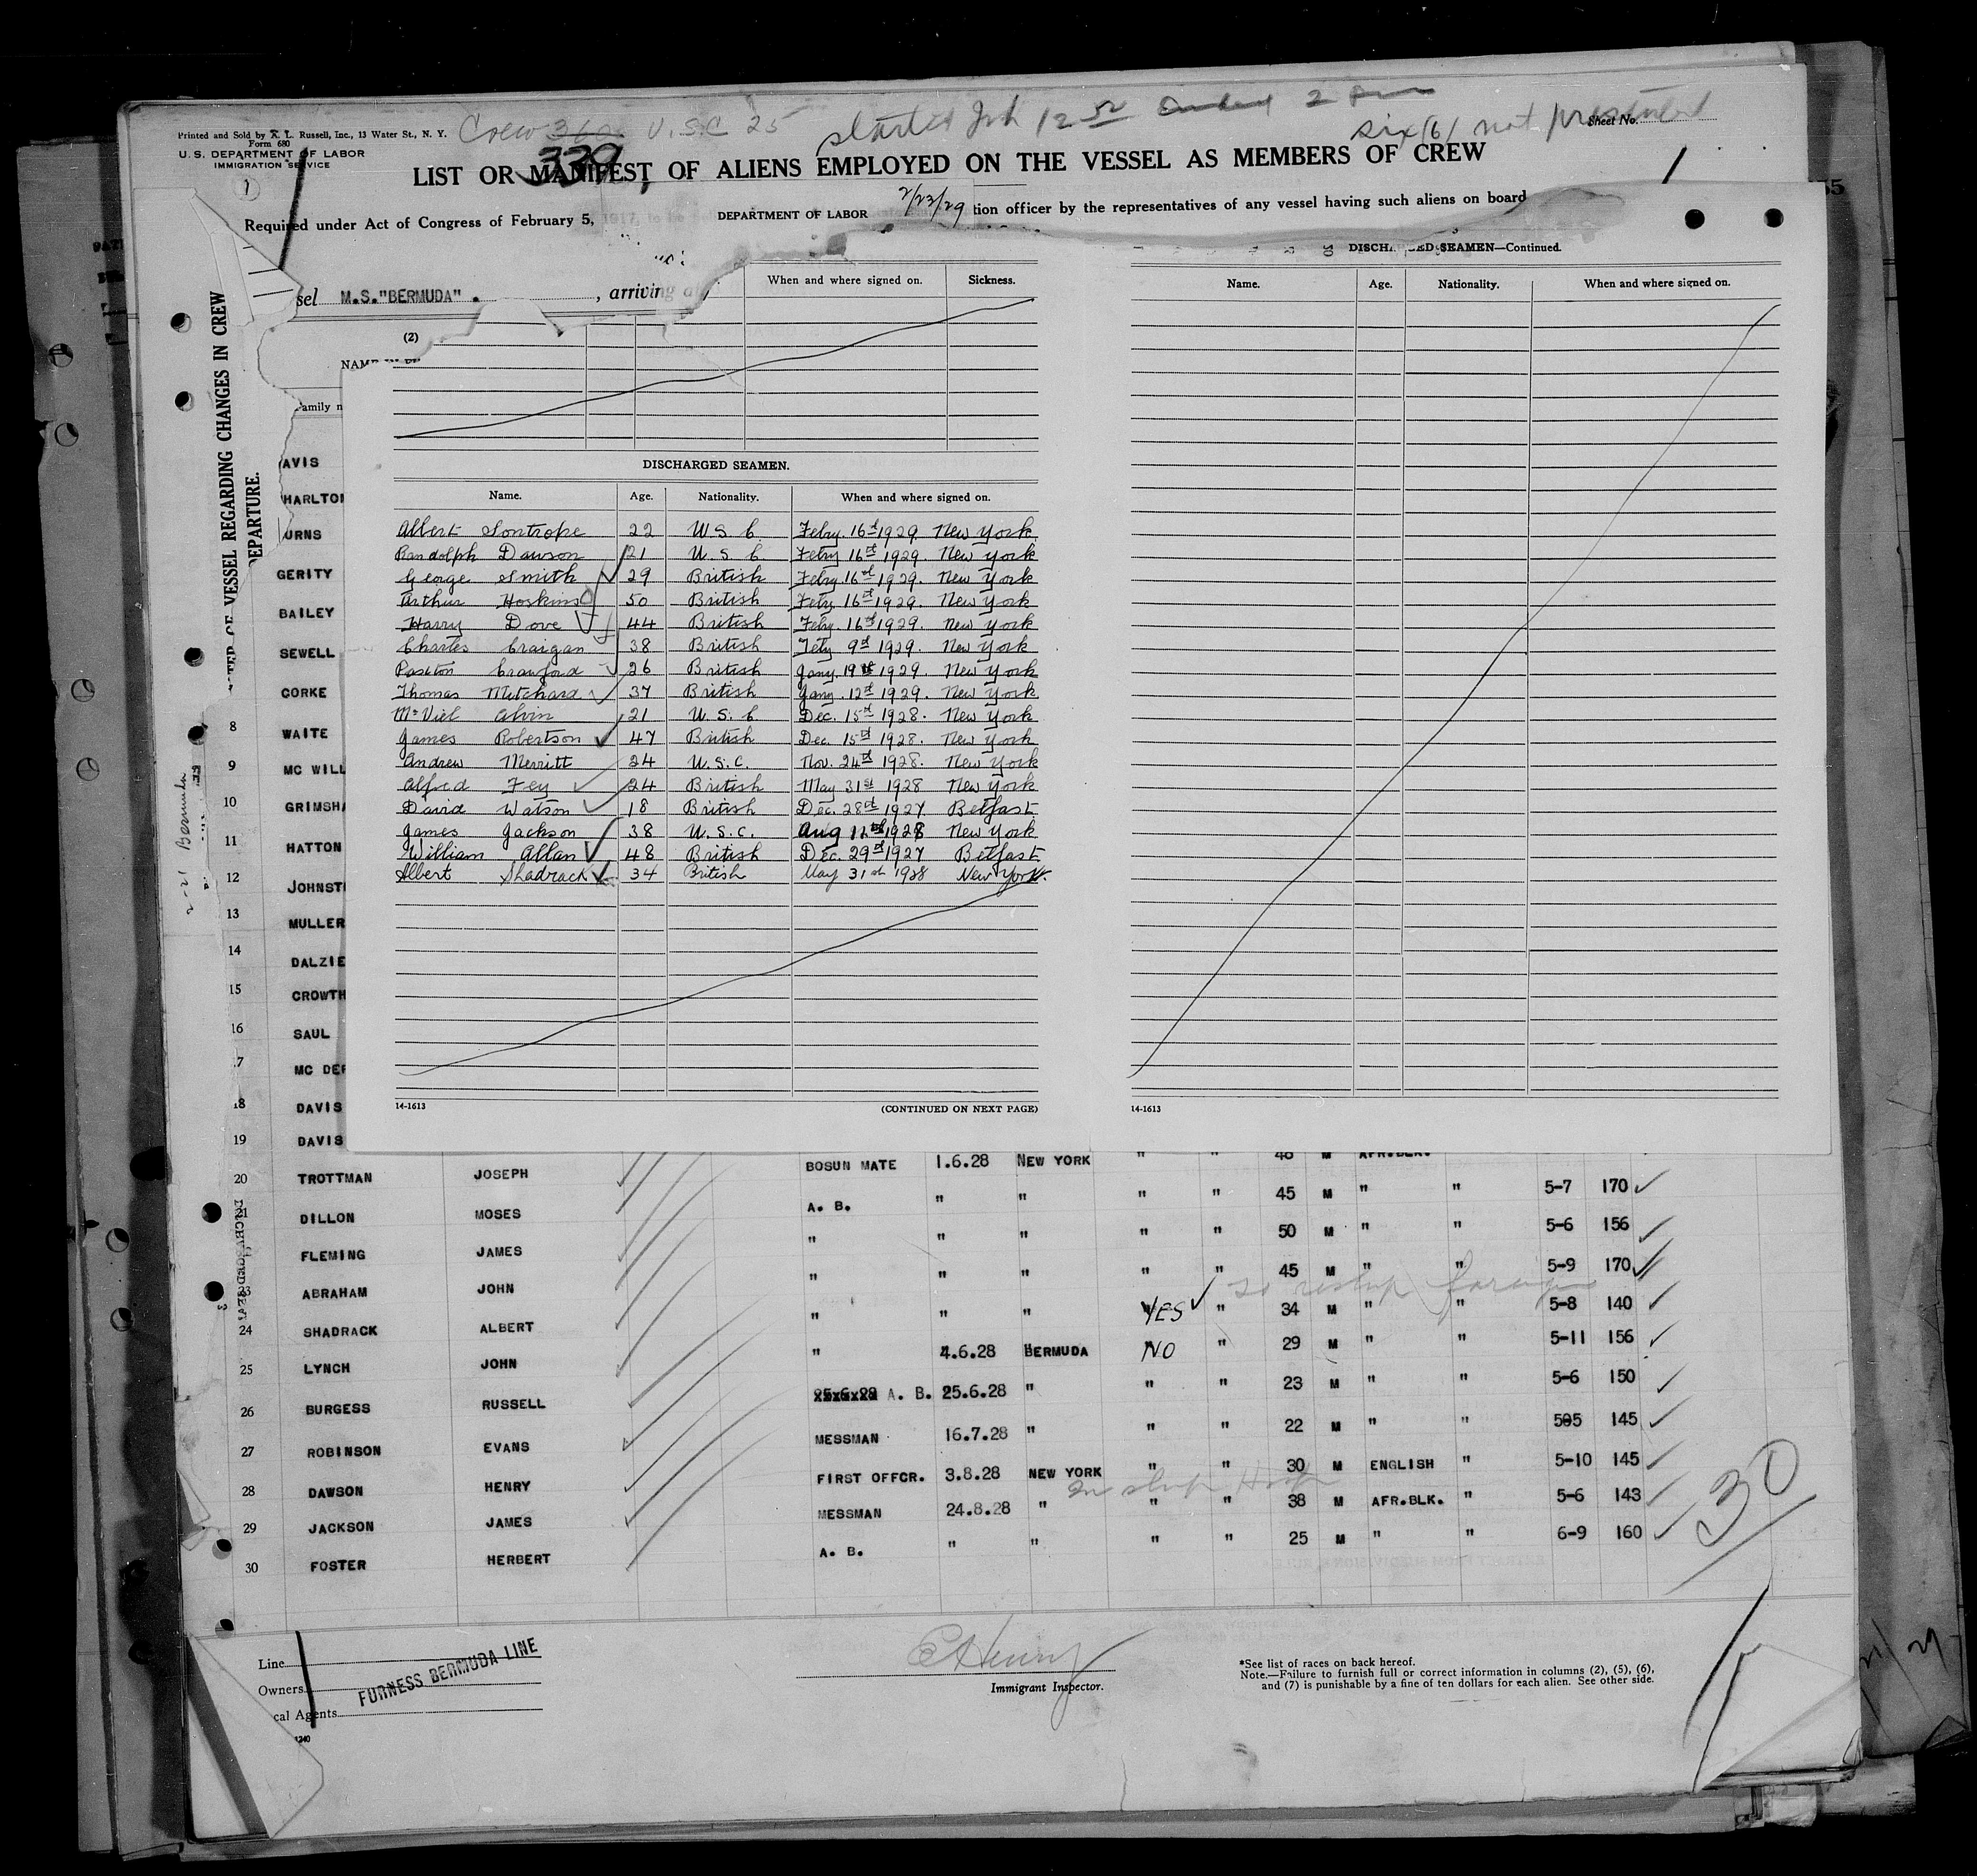 Printed and Sold by R. L. Russell, Inc., 13 Water St., N. Y.
Form 680
U. S. DEPARTMENT OF LABOR
IMMIGRATION SERVICE
1
Crew 360 U.S.C 25
339
started 12 50 2
six (6) not presented
Sheet No.
LIST OR MANIFEST OF ALIENS EMPLOYED ON THE VESSEL AS MEMBERS OF CREW
1
Required under Act of Congress of February 5, 1917, to be
DEPARTMENT OF LABOR
2/23/29
tion officer by the representatives of any vessel having such aliens on board
sel M.S."BERMUDA". , arriving at
VESSEL REGARDING CHANGES IN CREW
DEPARTURE.
(2)
When and where signed on. Sickness.
DISCHARGED SEAMEN.
Name. Age. Nationality. When and where signed on.
Albert Sontrope 22 U S C. Febry. 16th 1929. New York.
Randolph Dawson 21 U. S. C Febry 16th 1929. New York
George Smith 29 British Febry. 16th 1929. New York
Arthur Hoskins 50 British Febry 16th 1929. New York
Harry Dove 44 British Febry. 16th 1929. New York
Charles Craigan 38 British Febry 9th 1929. New York
Paxton Crawford 26 British Jany. 19th 1929. New York
Thomas Mitchard 37 British Jany. 12th 1929. New York
McViel Alvin 21 U. S. C Dec. 15th 1928. New York
James Robertson 47 British Dec. 15th 1928. New York
Andrew Merritt 24 U.S.C. Nov. 24th 1928. New York
Alfred Fey 24 British May 31st 1928 New York
David Watson 18 British Dec. 28th 1927. Belfast
James Jackson 38 U.S.C. Aug 12th 1928 New York
William Allan 48 British Dec. 29th 1927 Belfast
Albert Shadrack 34 British May 31st 1928 New York.
14-1613 (CONTINUED ON NEXT PAGE)
DISCHARGED SEAMEN—Continued.
Name. Age. Nationality. When and where signed on.
14-1613
2-21 Bermuda
AVIS
HARLTON
URNS
GERITY
BAILEY
SEWELL
CORKE
8 WAITE
9 MC WILL
10 GRIMSHA
11 HATTON
12 JOHNST
13 MULLER
14 DALZIE
15 CROWTH
16 SAUL
17 MC DE
18 DAVIS
19 DAVIS
20 TROTTMAN JOSEPH BOSUN MATE 1.6.28 NEW YORK " " M AFR.BLK.
21 DILLON MOSES A. B. " " " " 45 M " " 5-7 170
FLEMING JAMES " " " " " 50 M " " 5-6 156
ABRAHAM JOHN " " " " " 45 M " " 5-9 170
to reship foreign
24 SHADRACK ALBERT " " " YES " 34 M " " 5-8 140
25 LYNCH JOHN " 4.6.28 BERMUDA NO " 29 M " " 5-11 156
26 BURGESS RUSSELL A. B. 25.6.28 " " " 23 M " " 5-6 150
27 ROBINSON EVANS MESSMAN 16.7.28 " " " 22 M " " 505 145
28 DAWSON HENRY FIRST OFFCR. 3.8.28 NEW YORK " " 30 M ENGLISH " 5-10 145
29 JACKSON JAMES MESSMAN 24.8.28 " " " 38 M AFR.BLK. " 5-6 143
30 FOSTER HERBERT A. B. " " " " 25 M " " 6-9 160
30
Line
FURNESS BERMUDA LINE
Owners
cal Agents
E Henry
Immigrant Inspector.
*See list of races on back hereof.
Note.—Failure to furnish full or correct information in columns (2), (5), (6),
and (7) is punishable by a fine of ten dollars for each alien. See other side.